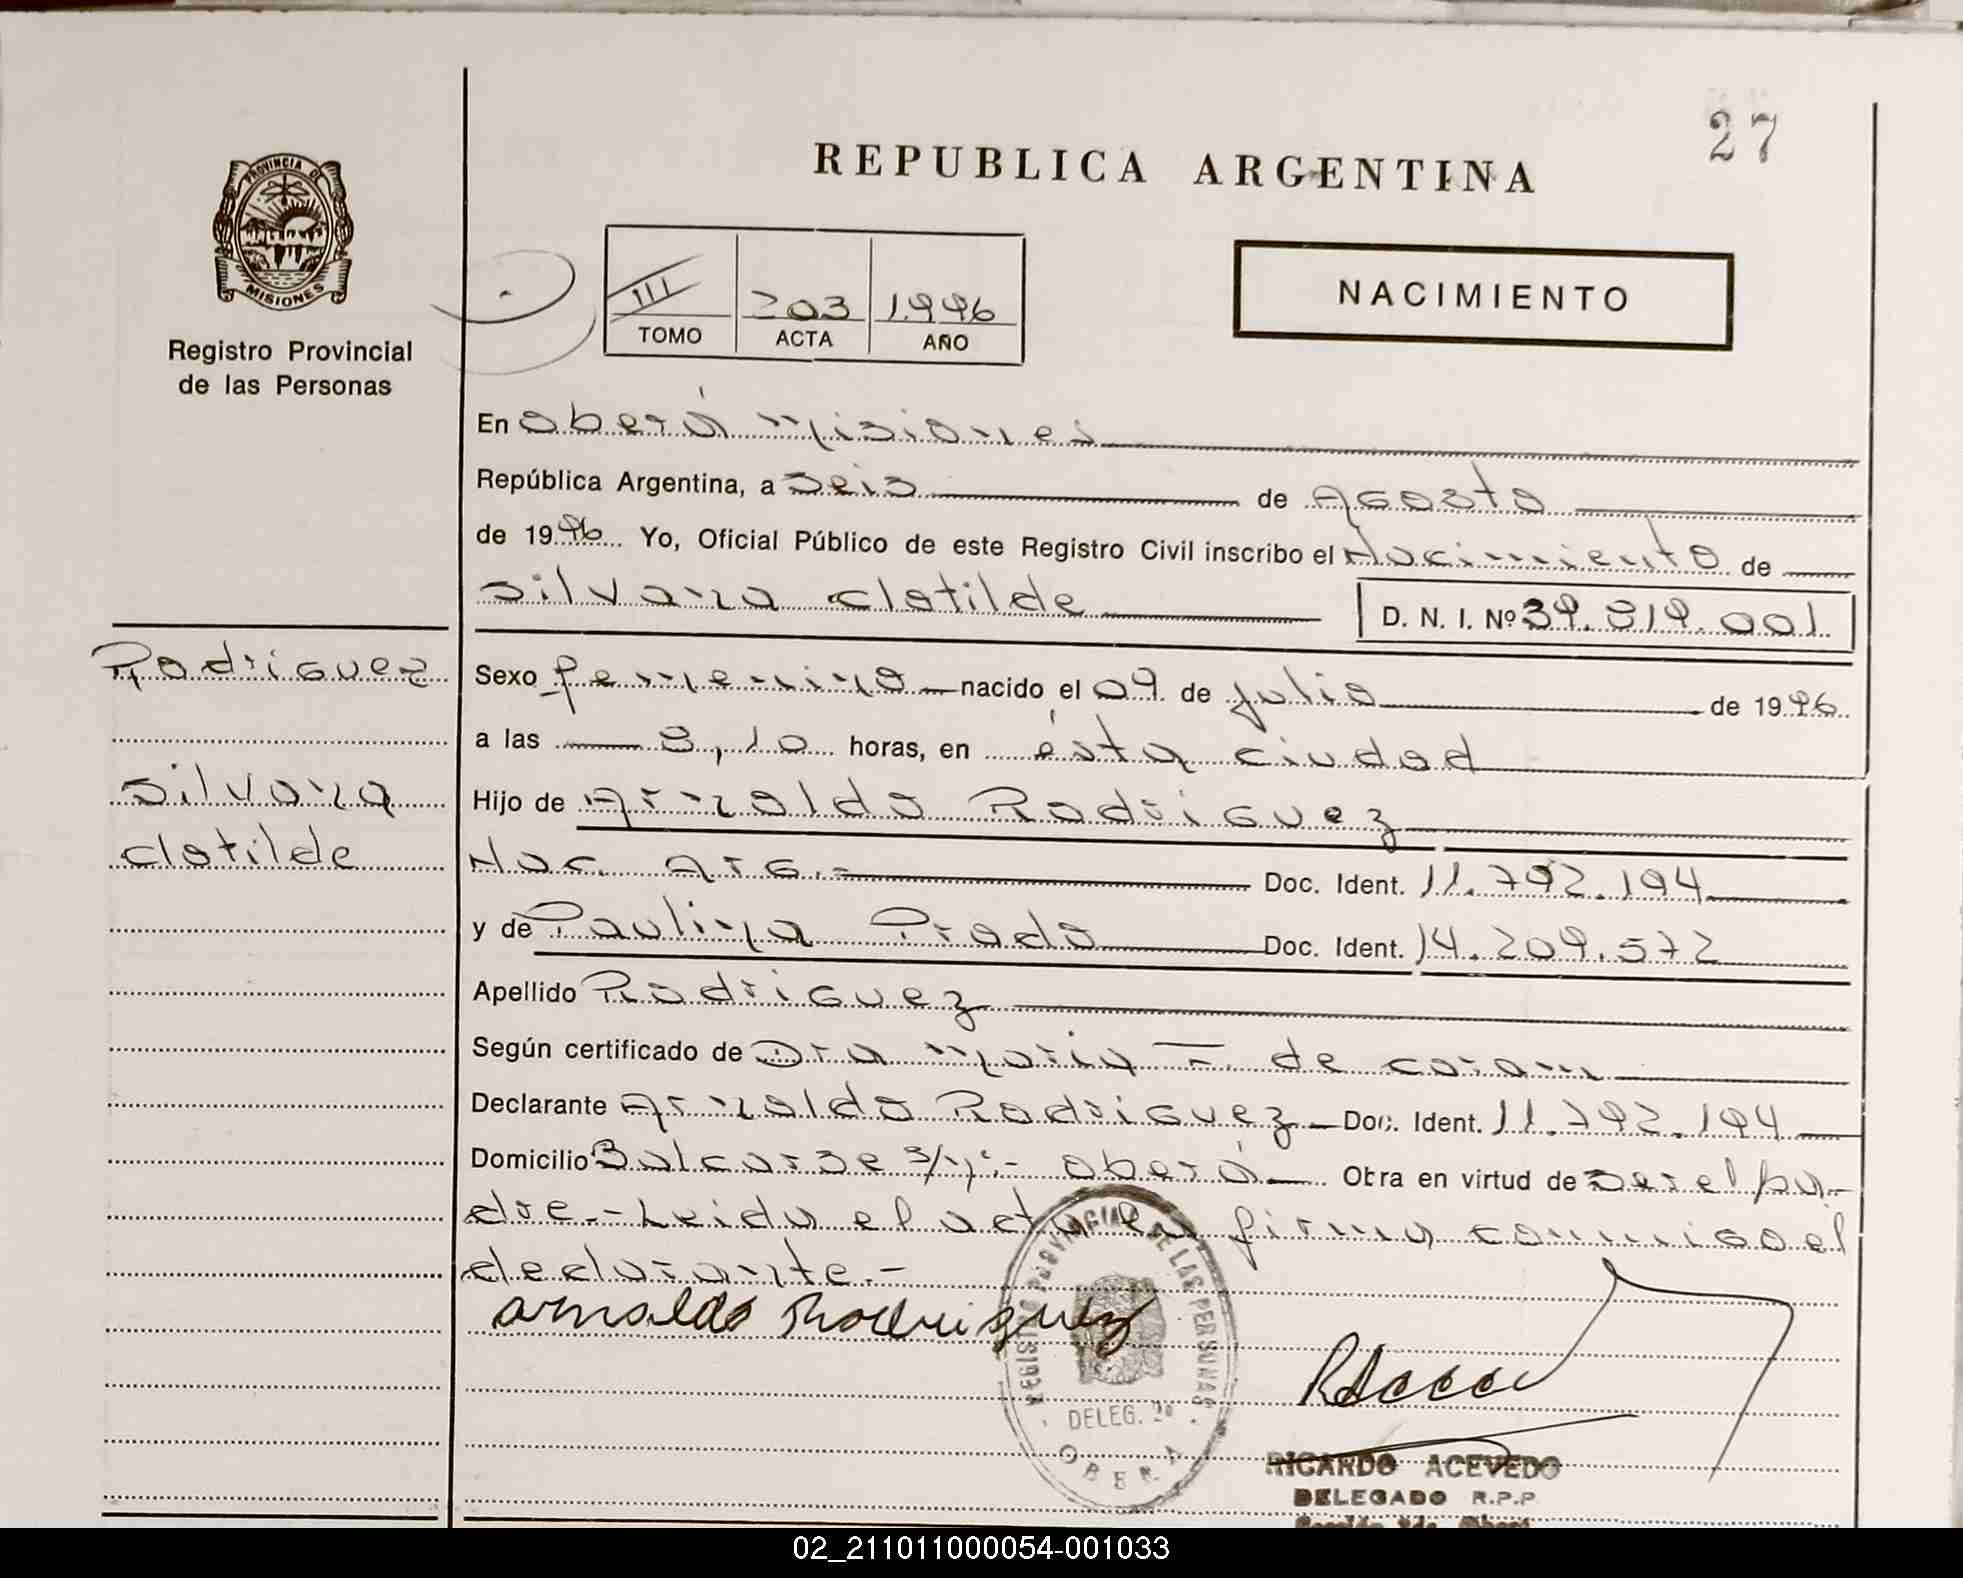 27
REPUBLICA ARGENTINA
PROVINCIA DE
MISIONES
Registro Provincial
de las Personas
III 203 1.996
TOMO ACTA AÑO
NACIMIENTO
En Oberá Misiones
República Argentina, a Seis de Agosto
de 1996 Yo, Oficial Público de este Registro Civil inscribo el Nacimiento de
Silvana Clotilde D. N. I. Nº 39.819.001
Rodriguez
Silvana
Clotilde
Sexo femenino nacido el 09 de julio de 1996
a las 8,10 horas, en ésta ciudad
Hijo de Arnaldo Rodriguez
Nac. Arg.- Doc. Ident. 11.792.194
y de Paulina Prado Doc. Ident. 14.209.572
Apellido Rodriguez
Según certificado de Dra Maria F. de
Declarante Arnaldo Rodriguez Doc. Ident. 11.792.194
Domicilio Balcarse s/nº.- Oberá Obra en virtud de ser el pa-
dre.- Leida el acta la firma conmigo el
declarante.-
Arnaldo Rodriguez
REGISTRO PROVINCIAL DE LAS PERSONAS
DELEG. 2a
OBERA
RICARDO ACEVEDO
DELEGADO R.P.P
02_211011000054-001033